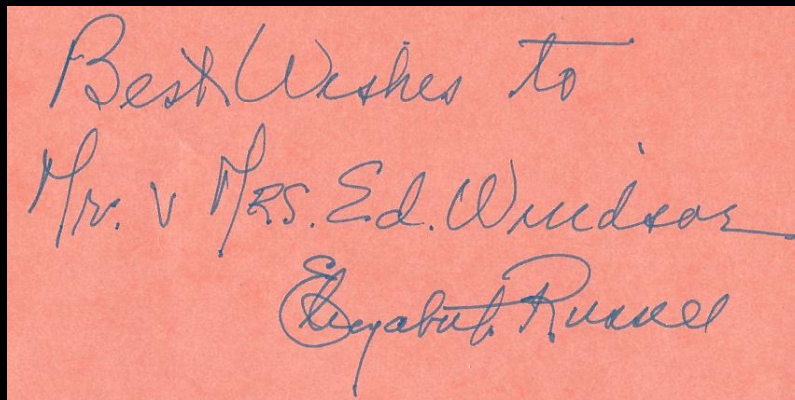 Best Wishes to
Mr. v Mrs. Ed. Windsor
Elizabeth Russell